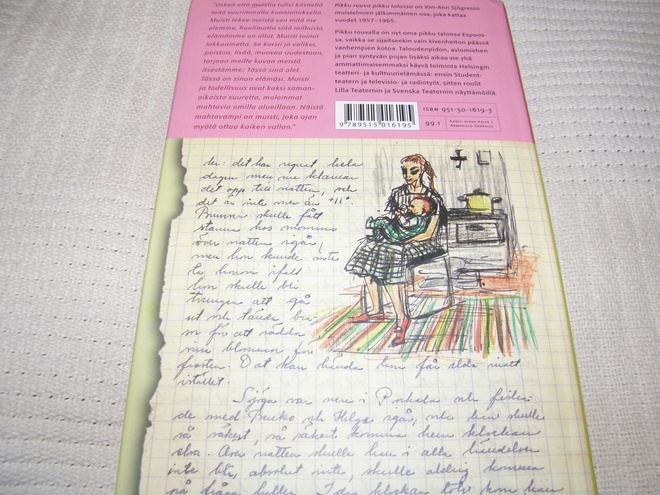 "Uskon että muistia tulisi käsitellä
mitä suurimmalla kunnioituksella.
Muisti tekee meistä sen mitä me
olemme, huolimatta siitä millaista
elämämme on ollut. Muisti toimii
lakkaamatta. Se karsii ja valikoi,
poistaa, lisää, muovaa uudestaan,
tarjoaa meille kuvan meistä
itsestämme: Tässä sinä olet.
Tässä on sinun elämäsi. Muisti
ja todellisuus ovat kaksi saman-
aikaista suuretta, molemmat
mahtavia omilla alueillaan. Näistä
mahtavampi on muisti, joka ajan
myötä ottaa kaiken vallan."
Pikku rouva pikku talossa on Vivi-Ann Sjögrenin
muistelmien jälkimmäinen osa, joka kattaa
vuodet 1957–1965.
Pikku rouvalla on nyt oma pikku talonsa Espoos-
sa, vaikka se sijaitseekin vain kivenheiton päässä
vanhempien kotoa. Taloudenpidon, aviomiehen
ja pian syntyvän pojan lisäksi aikaa vie yhä
ammattimaisemmaksi käyvä toiminta Helsingin
teatteri- ja kulttuurielämässä: ensin Student-
teatern ja televisio- ja radiotyöt, sitten roolit
Lilla Teaternin ja Svenska Teaternin näyttämöillä.
ISBN 951-50-1619-3
9 789515 016195
99.1
det har regnat hela
dagen men nu klarnar
det opp till natten, och
det är inte mer än +11°.
skulle fått
stanna hos mommo
över natten igår,
men hon kunde inte
hon skulle bli
tvungen att gå
ut och tända bra-
sor för att rädda
sin blommor för
frosten. Det kan hända han får åka i natt
istället.
Sjöga var men i
de med och Helga igår, och hon skulle
så säkert, så säkert komma hem klockan
elva. Över natten skulle hon i alla händelser
inte bli, absolut inte, skulle aldrig komma
på fråga heller. Idag klockan tolv kom hon